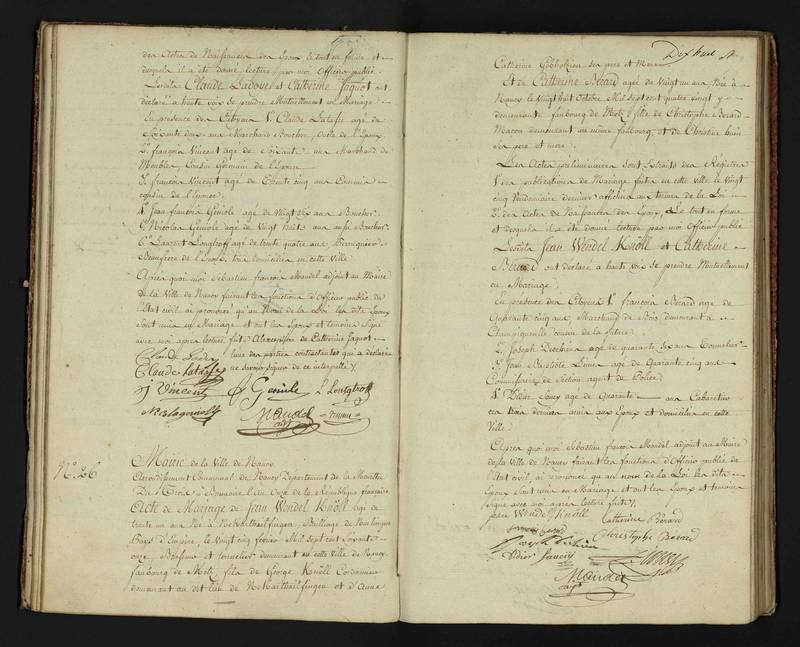 des Actes de Naissances des Epoux, le tout en forme et
desquels il a été donné lecture par moi Officier public.
Lesdits Claude Ladoyel et Catherine Jaquot ont
déclaré à haute voix se prendre Mutuellement en Mariage.
En presence des Citoyens 1° Claude Latasse agé de
Soixante deux ans Marchand Boucher, Oncle de l'Epoux
2° françois Vincent agé de Soixante ans Marchand de
Meubles, Cousin Germain de l'Epoux
3° françois Vincent agé de Trente cinq ans Commis
cousin de l'épouse.
4° Jean françois Geniole agé de Vingt six ans Boucher.
5° Nicolas Geniole agé de Vingt huit ans aussi Boucher
6° Laurent Longtroff agé de trente quatre ans Perruquier
Beaufrere de l'Epoux, tous domiciliés en cette Ville
Après quoi moi Sébastien françois Mandel adjoint au Maire
de la Ville de Nancy faisant les fonctions d'Officier public de
l'état Civil, ai prononcé qu'au Nom de la Loi les dits Epoux
Sont unis en Mariage et ont les Epoux et temoins Signé
avec moi après lecture faite à l'exception de Catherine Jaquot
l'une des parties contractantes qui a déclaré
ne savoir signer de ce interpellé
Claude Latasse
Vincent Geniole L Longtroff
Mandel
adjt
N° 26
Mairie de la Ville de Nancy
Arrondissement Communal de Nancy Département de la Meurthe
Du Trois Brumaire l'an Onze de la République française
Acte de Mariage de Jean Wendel Knöll agé de
trente un ans Né à Bailliage de
Pays d'Empire, le Vingt cinq fevrier Mil sept cent Soixante
onze et tonnelier demeurant en cette Ville de Nancy
faubourg de Metz, fils de George Knöll Cordonnier
demeurant au dit lieu de et d'Anne
Dix huit
Catherine ses pere et Mere
Et de Catherine Bérard agée de Vingt un ans Née à
Nancy le Vingt huit Octobre Mil Sept cent quatre Vingt
demeurante faubourg de Metz, fille de Christophe Bérard
Maçon demeurant au même faubourg, et de Christine
ses pere et mere.
Les Actes préliminaires Sont Extraits des Registres
1° des publications de Mariage faites en cette Ville le Vingt
cinq Vendemiaire dernier affichés aux termes de la Loi
2° des Actes de Naissances des Epoux, Le tout en forme
et desquels il a été donné lecture par moi Officier public
Lesdits Jean Wendel Knöll et Catherine
Bérard ont déclaré à haute voix se prendre Mutuellement
en Mariage
En presence des Citoyens 1° françois Bérard agé de
Quarante cinq ans Marchand de Bois demeurant à
Champigneulle cousin de la future.
2° Joseph agé de quarante six ans Tonnelier
3° Jean Baptiste agé de Quarante cinq ans
Commissaire de Section agent de Police
4° Didier agé de Quarante ans Cabaretier
ces trois derniers amis aux Epoux et domiciliés en cette
Ville
Après quoi moi Sébastien françois Mandel adjoint au Maire
de la Ville de Nancy faisant les fonctions d'Officier public de
l'état civil, ai prononcé qu'au nom de la Loi les dits
Epoux Sont unis en Mariage et ont les Epoux et temoins
Signé avec moi après lecture faite
Wendel Knöll Catherine Bérard
Christophe Berard
Joseph
Didier
Mandel
adjt